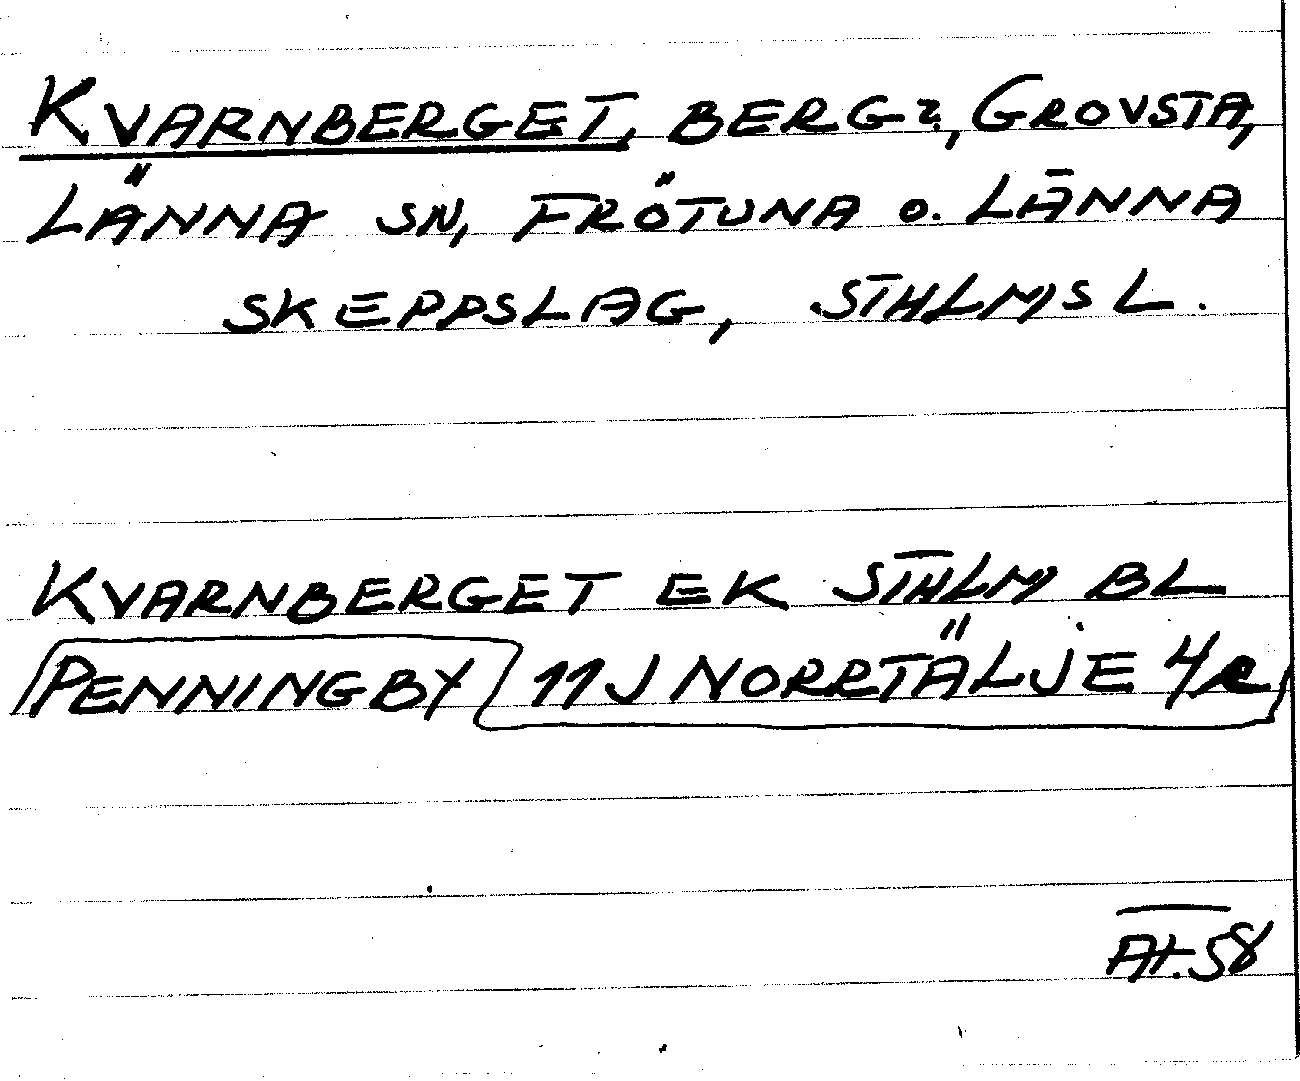 KVARNBERGET, BERG?, GROVSTA,
LÄNNA SN, FRÖTUNA O. LÄNNA
SKEPPSLAG, STHLMS L.
KVARNBERGET EK STHLM BL
PENNINGBY 11J NORRTÄLJE 4e
At.58